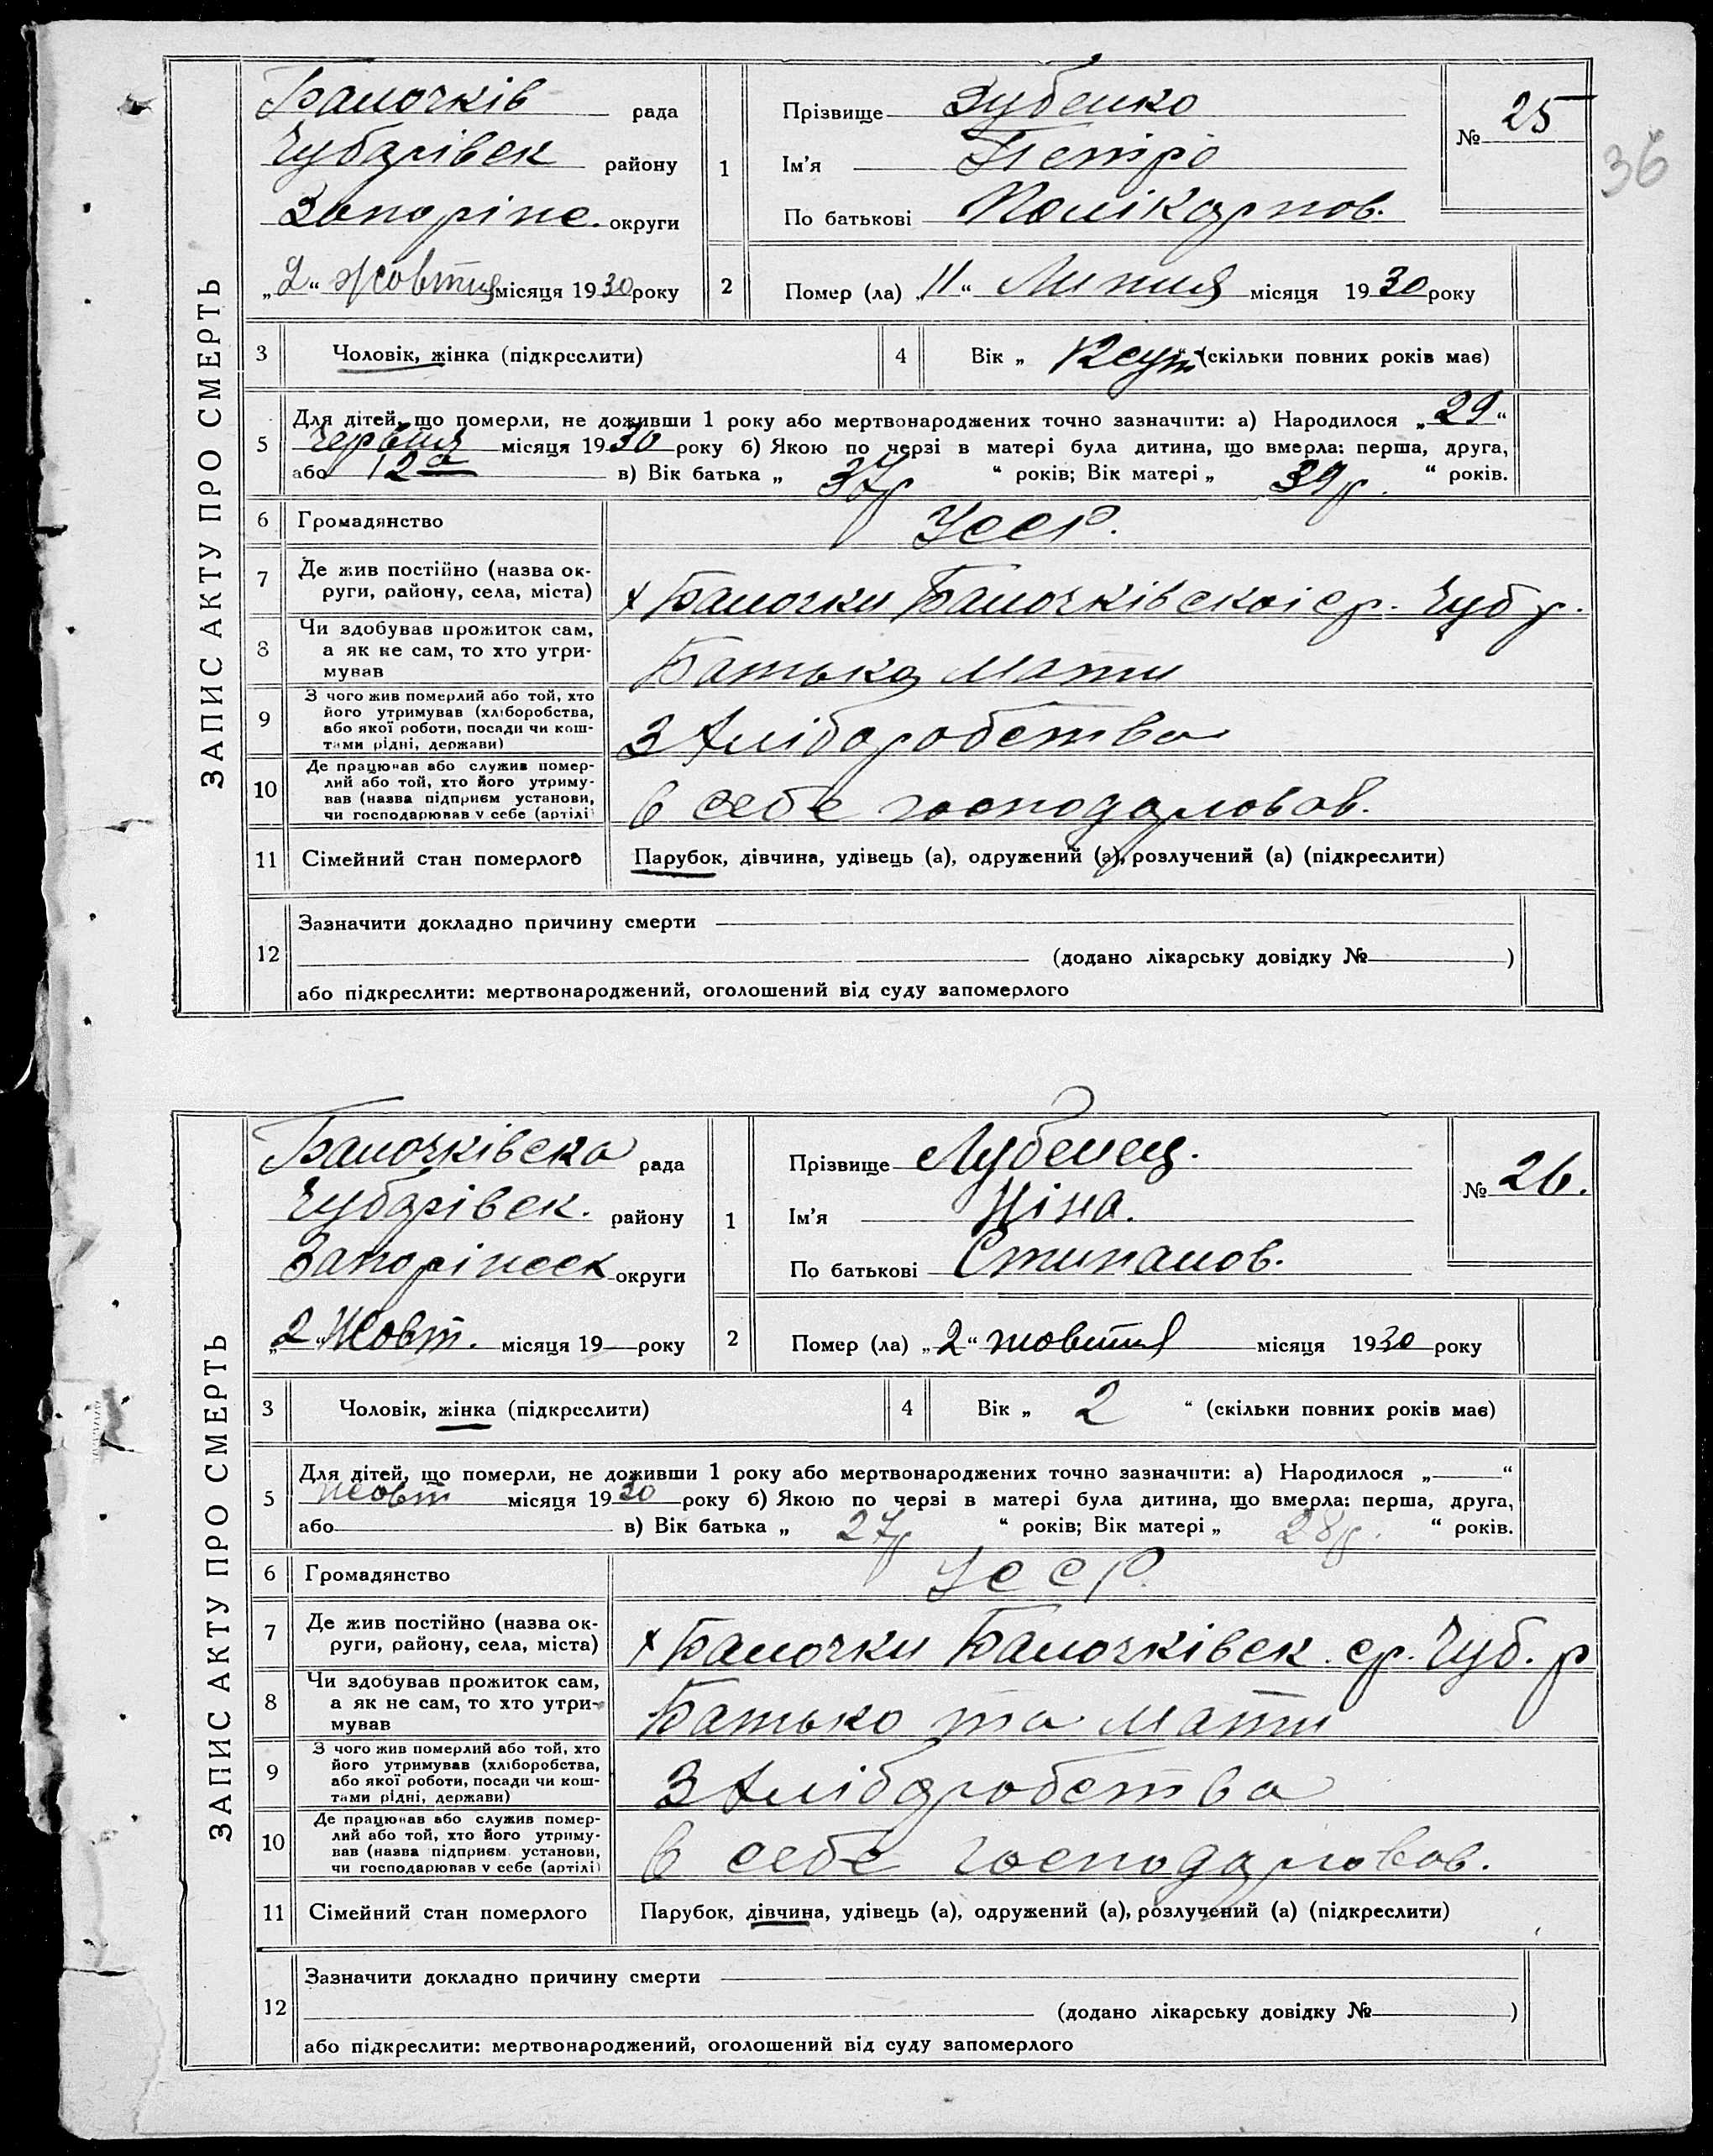 ЗАПИС АКТУ ПРО СМЕРТЬ
Балочків рада
Чубарівск району
Запоріже. округи
„2“ Жовтня місяця 1930 року
1 Прізвище Зубенко
Ім'я Петро
По батькові Полікарпов.
№ 25
36
2 Помер (ла) „11“ Липня місяця 1930 року
3 Чоловік, жінка (підкреслити)
4 Вік „ “ (скільки повних років має)
5 Для дітей, що померли, не доживши 1 року або мертвонароджених точно зазначити: а) Народилося „29“
Червня місяця 1930 року б) Якою по черзі в матері була дитина, що вмерла: перша, друга,
або 12а в) Вік батька „ 37р “ років; Вік матері „ 39р. “ років.
6 Громадянство УССР.
7 Де жив постійно (назва ок-
руги, району, села, міста) х Балочки Балочківскоі ср. Чуб р.
8 Чи здобував прожиток сам,
а як не сам, то хто утри-
мував Батько Мати
9 З чого жив померлий або той, хто
його утримував (хліборобства,
або якої роботи, посади чи кош-
тами рідні, держави) З Хліборобства
10 Де працював або служив помер-
лий або той, хто його утриму-
вав (назва підприєм установи,
чи господарював у себе (артілі) в себе господарював.
11 Сімейний стан померлого Парубок, дівчина, удівець (а), одружений (а), розлучений (а) (підкреслити)
12 Зазначити докладно причину смерти
(додано лікарську довідку № )
або підкреслити: мертвонароджений, оголошений від суду запомерлого
ЗАПИС АКТУ ПРО СМЕРТЬ
Балочківска рада
Чубарівск. району
Запоріжск округи
„2“ Жовт. місяця 19 року
1 Прізвище Лубенец.
Ім'я Ніна.
По батькові Стипанов.
№ 26.
2 Помер (ла) „2“ жовтня місяця 1930 року
3 Чоловік, жінка (підкреслити)
4 Вік „ 2 “ (скільки повних років має)
5 Для дітей, що померли, не доживши 1 року або мертвонароджених точно зазначити: а) Народилося „ “
жовт місяця 1930 року б) Якою по черзі в матері була дитина, що вмерла: перша, друга,
або в) Вік батька „ 27р “ років; Вік матері „ 28р. “ років.
6 Громадянство УССР.
7 Де жив постійно (назва ок-
руги, району, села, міста) х Балочки Балочківск. ср. Чуб. р
8 Чи здобував прожиток сам,
а як не сам, то хто утри-
мував Батько та мати
9 З чого жив померлий або той, хто
його утримував (хліборобства,
або якої роботи, посади чи кош-
тами рідні, держави) З Хліборобства
10 Де працював або служив помер-
лий або той, хто його утриму-
вав (назва підприєм. установи,
чи господарював у себе (артілі) в себе господаровав.
11 Сімейний стан померлого Парубок, дівчина, удівець (а), одружений (а), розлучений (а) (підкреслити)
12 Зазначити докладно причину смерти
(додано лікарську довідку № )
або підкреслити: мертвонароджений, оголошений від суду запомерлого